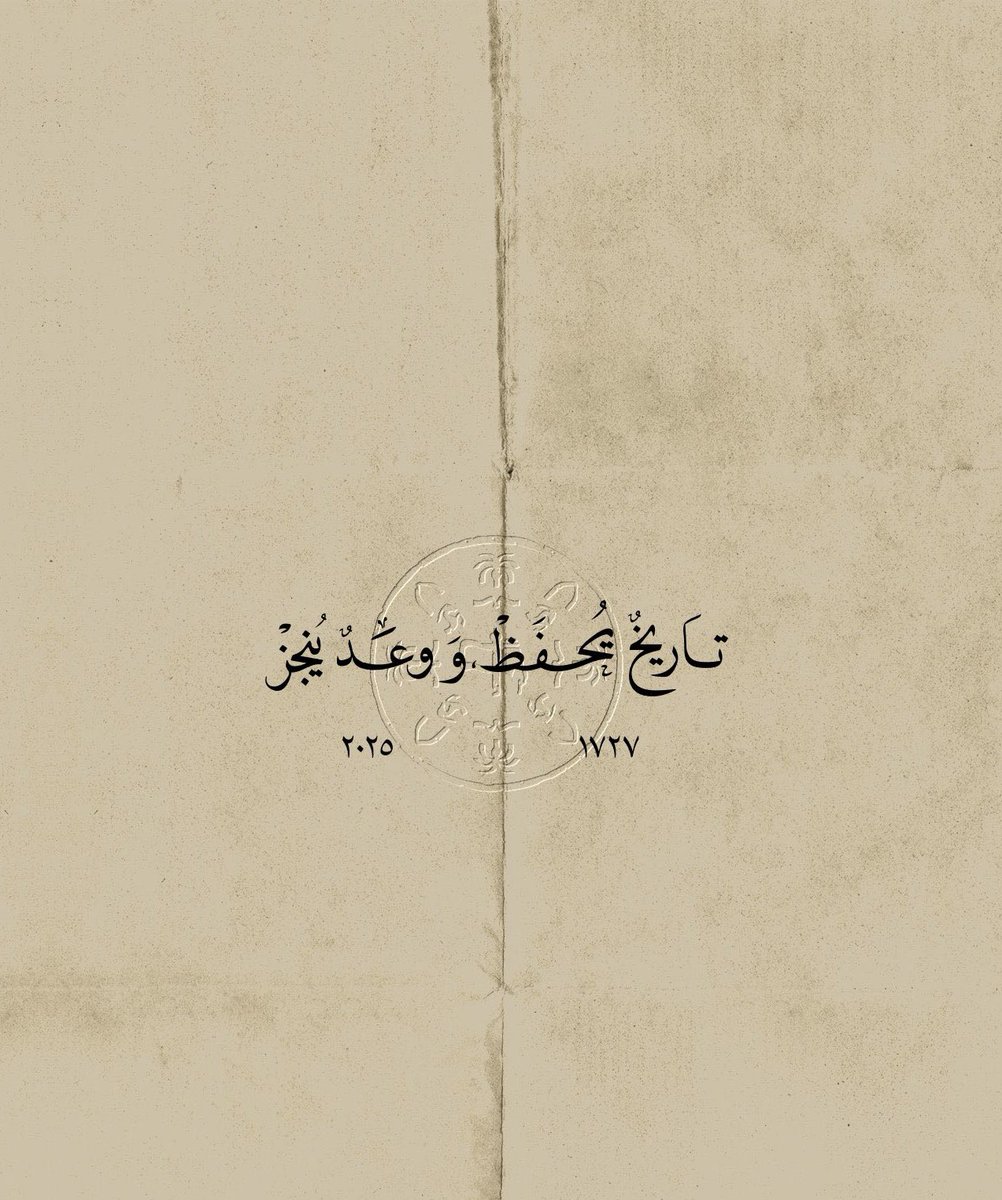 تاريخٌ يُحفَظْ، وَ وعَدٌ يُنجزْ
١٧٢٧ ٢٠٢٥